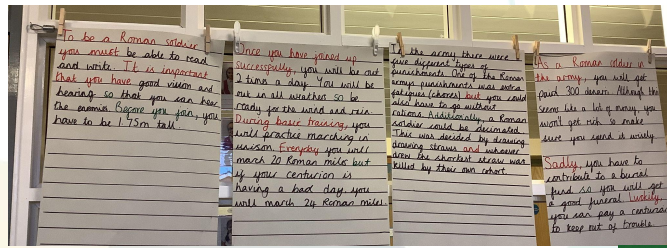 To be a Roman soldier
you must be able to read
and write. It is important
that you have good vision and
hearing so that you can hear
the enemies. Before you join, you
have to be 1.75m tall.
Once you have joined up
successfully, you will be out
2 times a day. You will be
out in all weathers so be
ready for the wind and rain.
During basic training, you
will practice marching in
unison. Everyday you will
march 20 Roman miles but
if your centurion is
having a bad day you
will march 24 Roman miles.
In the army there were
five different types of
punishments. One of the Roman
armys punishments was extra
fatigues (chores) but you could
also have to go without
rations. Additionally, a Roman
soldier could be decimated.
This was decided by drawing
drawing straws and whoever
drew the shortest straw was
killed by their own cohort.
As a Roman soldier in
the army, you will get
paid 300 denarii. Although this
seems like a lot of money, you
won't get rich so make
sure you spend it wisely.
Sadly, you have to
contribute to a burial
fund so you will get
a good funeral. Luckily,
you can pay a centurion
to keep out of trouble.